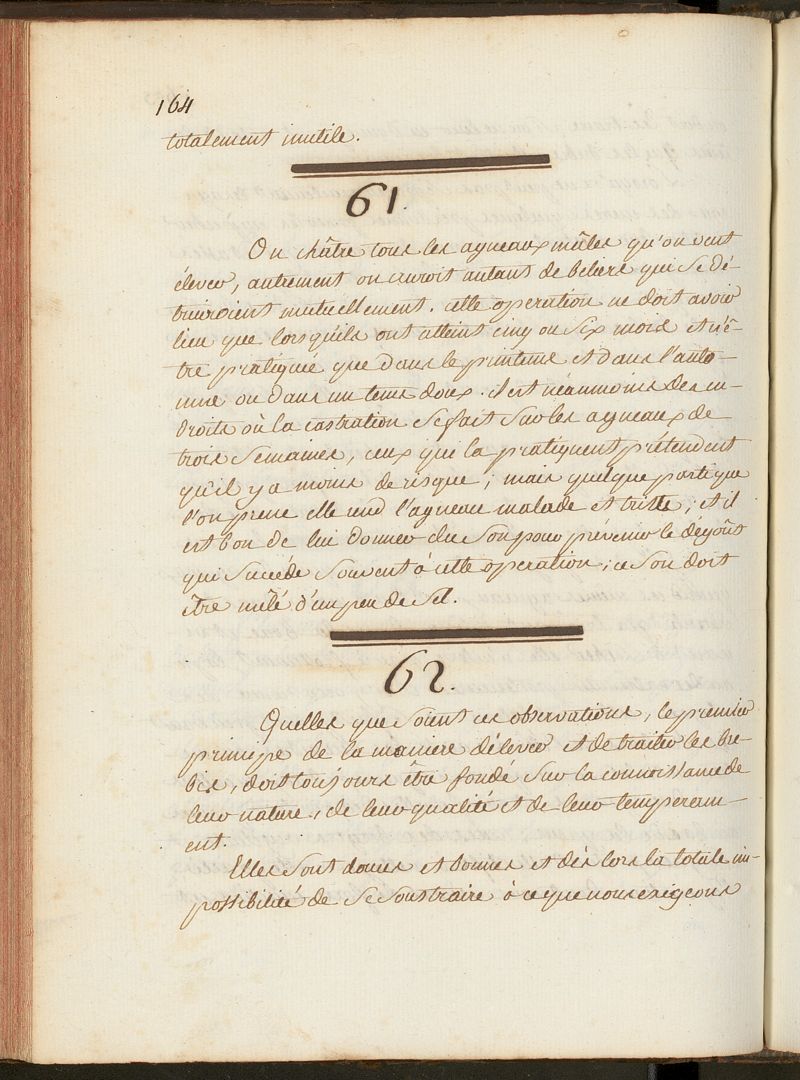 164
totalement inutile.
61.
On châtre tous les agneaux mâles qu'on veut
élever, autrement on auroit autant de beliers qui se dé-
truiroient mutuellement. cette operation ne doit avoir
lieu que lorsqu'ils ont atteint cinq ou six mois et n'ê-
tre pratiquée que dans le printems et dans l'auto-
mne ou dans un tems doux. il est néanmoins des en-
droits où la castration se fait sur les agneaux de
trois semaines, ceux qui la pratiquent prétendent
qu'il y a moins de risque; mais quelque parti que
l'on prene elle rend l'agneau malade et triste; et il
est bon de lui donner du son pour prévenir le dégoût
qui succéde souvent à cette operation; ce son doit
être mêlé d'un peu de sel.
62.
Quelles que soient ces observations, le premier
principe de la maniere d'élever et de traiter les bre-
bis, doit toujours être fondé sur la connoissance de
leur nature, de leur qualité et de leur temperam-
ent.
Elles sont douces et bonnes et dès lors la totale im-
possibilité de se soustraire à ce que nous exigeons